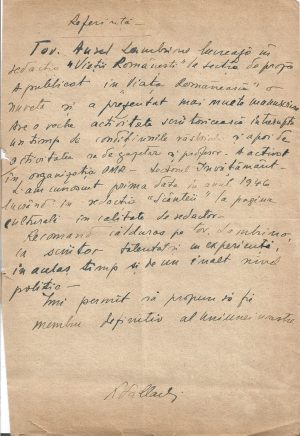 Referință
Tov. Aurel Lambrino lucrează în
redacția "Vieții Românești" la secția de proză
A publicat în "Viața Românească" o
nuvelă și a prezentat mai multe manuscrise
Are o veche activitate scriitoricească întreruptă
un timp de condițiunile războiului și apoi de
activitatea sa de gazetar și profesor. A activat
în organizația PMR - Sectorul Învățământ.
L-am cunoscut prima dată în anul 1946
lucrând în redacția "Scânteii" la pagina
culturală în calitate de redactor.
Recomand călduros pe tov. Lambrino,
ca scriitor talentat și cu experiență,
în același timp și de un înalt nivel
politic -
Îmi permit să propun să fie
membru definitiv al Uniunei noastre